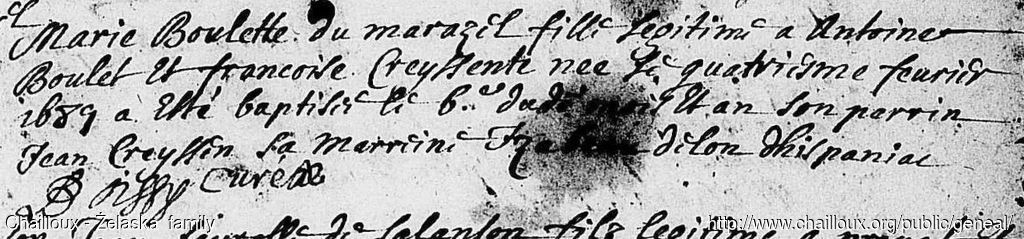 Marie Boulette du marazel fille legitime a Antoine
Boulet Et francoise Creyssente nee le quatriesme feurier
1689 a Esté baptisée le 6.e dudt mois Et an son perrin
Jean Creyssen sa marreine Izabeau delon dhispaniac
Curé
Chailloux - Żelaska family
http://www.chailloux.org/public/geneal/
de salanson fils legitime a